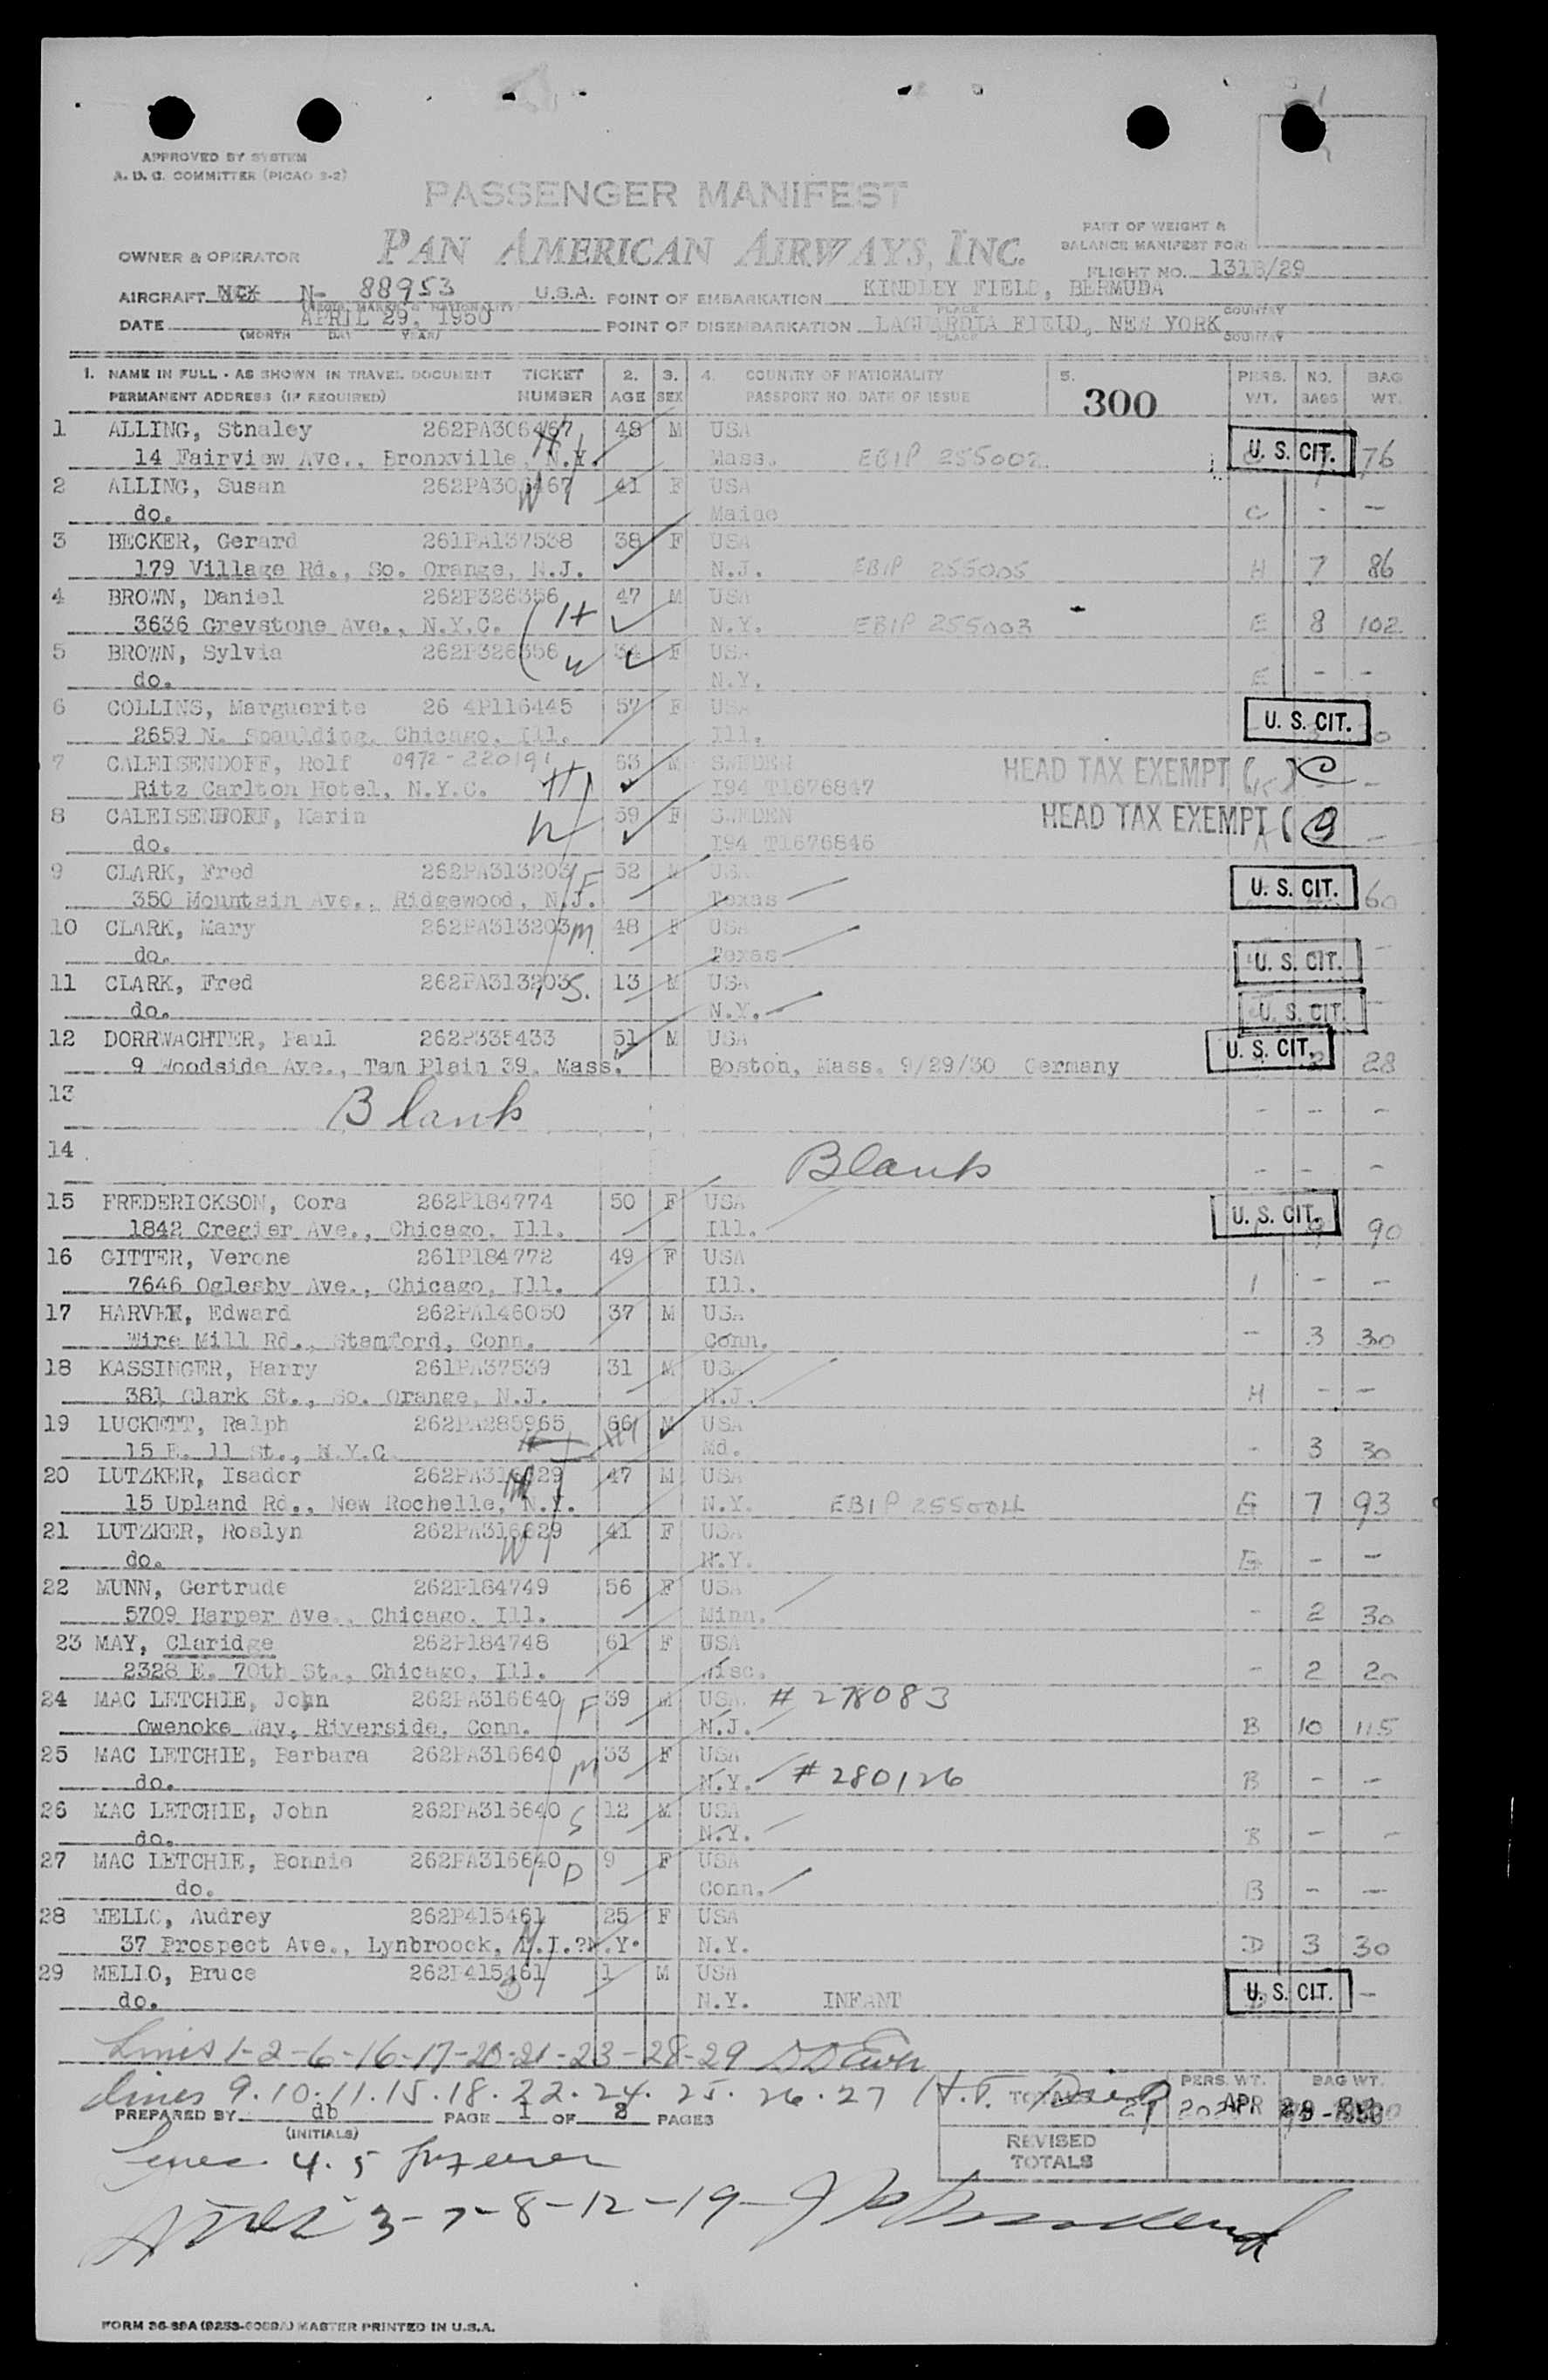 APPROVED BY SYSTEM
A. D. C. COMMITTEE (PICAO 2-2)
PASSENGER MANIFEST
PAN AMERICAN AIRWAYS, INC.
PART OF WEIGHT &
BALANCE MANIFEST FOR:
OWNER & OPERATOR
FLIGHT NO. 131B/29
AIRCRAFT N- 88953 U.S.A. POINT OF EMBARKATION KINDLEY FIELD, BERMUDA
PLACE COUNTRY
DATE APRIL 29, 1950 POINT OF DISEMBARKATION LAGUARDIA FIELD, NEW YORK
(MONTH DAY YEAR) PLACE COUNTRY
1. NAME IN FULL - AS SHOWN IN TRAVEL DOCUMENT TICKET 2. 3. 4. COUNTRY OF NATIONALITY 5. PERS. NO. BAG
PERMANENT ADDRESS (IF REQUIRED) NUMBER AGE SEX PASSPORT NO. DATE OF ISSUE 300 WT. BAGS WT.
1 ALLING, Stnaley 262PA306467 48 M USA
14 Fairview Ave., Bronxville, N.Y. H Mass. EBIP 255002 U. S. CIT. 7 76
2 ALLING, Susan 262PA306467 41 F USA
do. W Maine C - -
3 BECKER, Gerard 261PA137538 38 F USA
179 Village Rd., So. Orange, N.J. N.J. EBIP 255005 H 7 86
4 BROWN, Daniel 262P326356 47 M USA
3636 Greystone Ave., N.Y.C. H N.Y. EBIP 255003 E 8 102
5 BROWN, Sylvia 262P326356 34 F USA
do. W N.Y. E - -
6 COLLINS, Marguerite 26 4P116445 57 F USA
2659 N. Spaulding, Chicago, Ill. Ill. U. S. CIT.
7 CALEISENDOFF, Rolf 0972-220191 63 M SWEDEN
Ritz Carlton Hotel, N.Y.C. H I94 T1676847 HEAD TAX EXEMPT ( -
8 CALEISENDORF, Karin 59 F SWEDEN
do. W I94 T1676846 HEAD TAX EXEMPT ( -
9 CLARK, Fred 262PA313203 F 52 M USA
350 Mountain Ave., Ridgewood, N.J. Texas U. S. CIT. 60
10 CLARK, Mary 262PA313203 M 48 F USA
do. Texas U. S. CIT. -
11 CLARK, Fred 262PA313203 S. 13 M USA
do. N.Y. U. S. CIT.
12 DORRWACHTER, Paul 262P335433 51 M USA
9 Woodside Ave., Tam Plain 39, Mass. Boston, Mass. 9/29/30 Germany U. S. CIT. 2 28
13 Blank - - -
14 Blank - - -
15 FREDERICKSON, Cora 262P184774 50 F USA
1842 Cregier Ave., Chicago, Ill. Ill. U. S. CIT. 90
16 GITTER, Verone 261P184772 49 F USA
7646 Oglesby Ave., Chicago, Ill. Ill. 1 - -
17 HARVEY, Edward 262PA146050 37 M USA
Wire Mill Rd., Stamford, Conn. Conn. - 3 30
18 KASSINGER, Harry 261PA37539 31 M USA
381 Clark St., So. Orange, N.J. N.J. H - -
19 LUCKETT, Ralph 262PA285965 66 M USA
15 E. 11 St., N.Y.C. Md. - 3 30
20 LUTZKER, Isador 262PA316629 47 M USA
15 Upland Rd., New Rochelle, N.Y. N.Y. EBIP 255004 G 7 93
21 LUTZKER, Roslyn 262PA316629 41 F USA
do. W N.Y. G - -
22 MUNN, Gertrude 262P184749 56 F USA
5709 Harper Ave., Chicago, Ill. Minn. - 2 30
23 MAY, Claridge 262P184748 61 F USA
2328 E. 70th St., Chicago, Ill. Wisc. - 2 20
24 MAC LETCHIE, John 262PA316640 F 39 M USA # 278083
Owenoke Way, Riverside, Conn. N.J. B 10 115
25 MAC LETCHIE, Barbara 262PA316640 M 33 F USA
do. N.Y. # 280126 B - -
26 MAC LETCHIE, John 262PA316640 S 12 M USA
do. N.Y. B - -
27 MAC LETCHIE, Bonnie 262PA316640 D 9 F USA
do. Conn. B - -
28 MELLO, Audrey 262P415461 25 F USA
37 Prospect Ave., Lynbroock, L.I.?N.Y. M N.Y. D 3 30
29 MELLO, Bruce 262P415461 1 M USA
do. S N.Y. INFANT U. S. CIT. -
Lines 1-2-6-16-17-20-21-23-28-29
Lines 9.10.11.15.18.22.24.25.26.27 H.F.
TOTALS PERS. WT. BAG WT.
APR 29 1950
PREPARED BY db PAGE 1 OF 2 PAGES
(INITIALS)
Lines 4.5
REVISED
TOTALS
3-7-8-12-19-
FORM 36-59A MASTER PRINTED IN U.S.A.